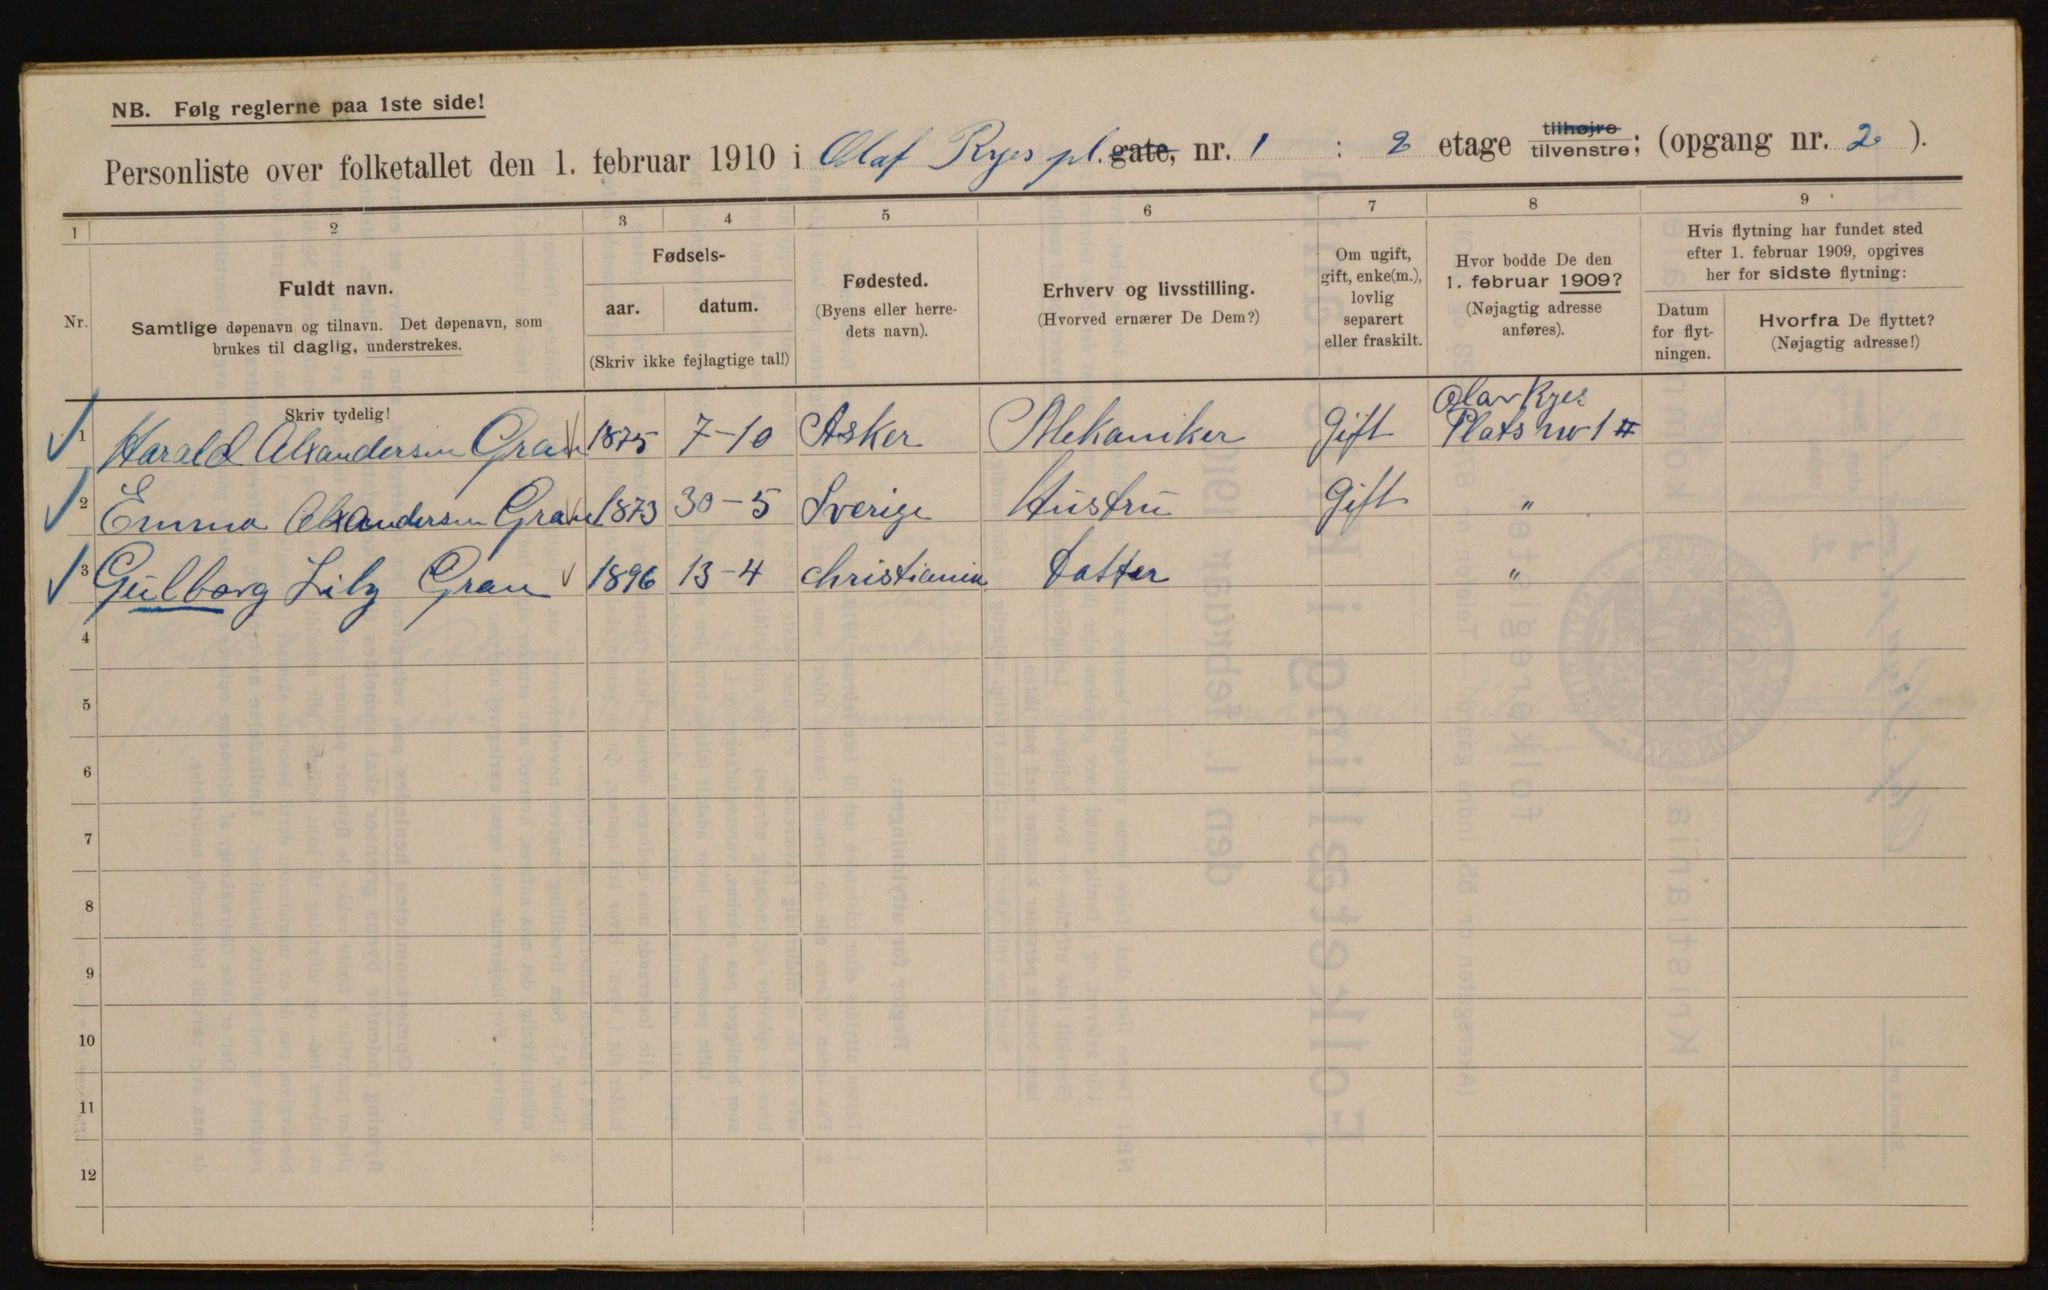 NB. Følg reglerne paa 1ste side!
Personliste over folketallet den 1. februar 1910 i Olaf Ryes pl. gate, nr. 1 : 2 etage tilhøjre tilvenstre; (opgang nr. 2 ).
1 2 3 4 5 6 7 8 9
Nr.
Fuldt navn.
Samtlige døpenavn og tilnavn. Det døpenavn, som
brukes til daglig, understrekes.
Skriv tydelig!
Fødsels-
aar. datum.
(Skriv ikke fejlagtige tal!)
Fødested.
(Byens eller herre-
dets navn).
Erhverv og livsstilling.
(Hvorved ernærer De Dem?)
Om ugift,
gift, enke(m.),
lovlig
separert
eller fraskilt.
Hvor bodde De den
1. februar 1909?
(Nøjagtig adresse
anføres).
Hvis flytning har fundet sted
efter 1. februar 1909, opgives
her for sidste flytning:
Datum
for flyt-
ningen.
Hvorfra De flyttet?
(Nøjagtig adresse!)
Olav Ryes
1 Harald Alxandersen Gran 1875 7-10 Asker Mekaniker Gift Plats no 1 #
2 Emma Alxandersen Gran 1873 30-5 Sverige Hustru Gift "
3 Gulborg Lily Gran 1896 13-4 Christiania Datter "
4
5
6
7
8
9
10
11
12